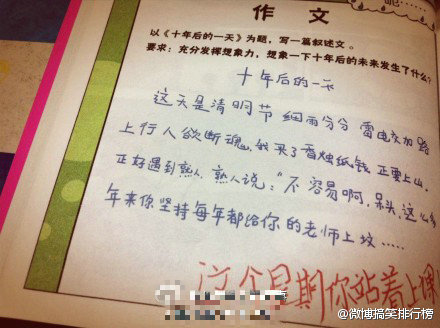 作 文
以《十年后的一天》为题，写一篇叙述文。
要求：充分发挥想象力，想象一下十年后的未来发生了什么？
十年后的一天
这天是清明节 细雨分分 雷电交加 路
上行人欲断魂，我买了香烛纸钱 正要上山，
正好遇到熟人，熟人说："不容易啊，呆头，这么多
年来你坚持每年都给你的老师上坟……
这个星期你站着上课
@微博搞笑排行榜